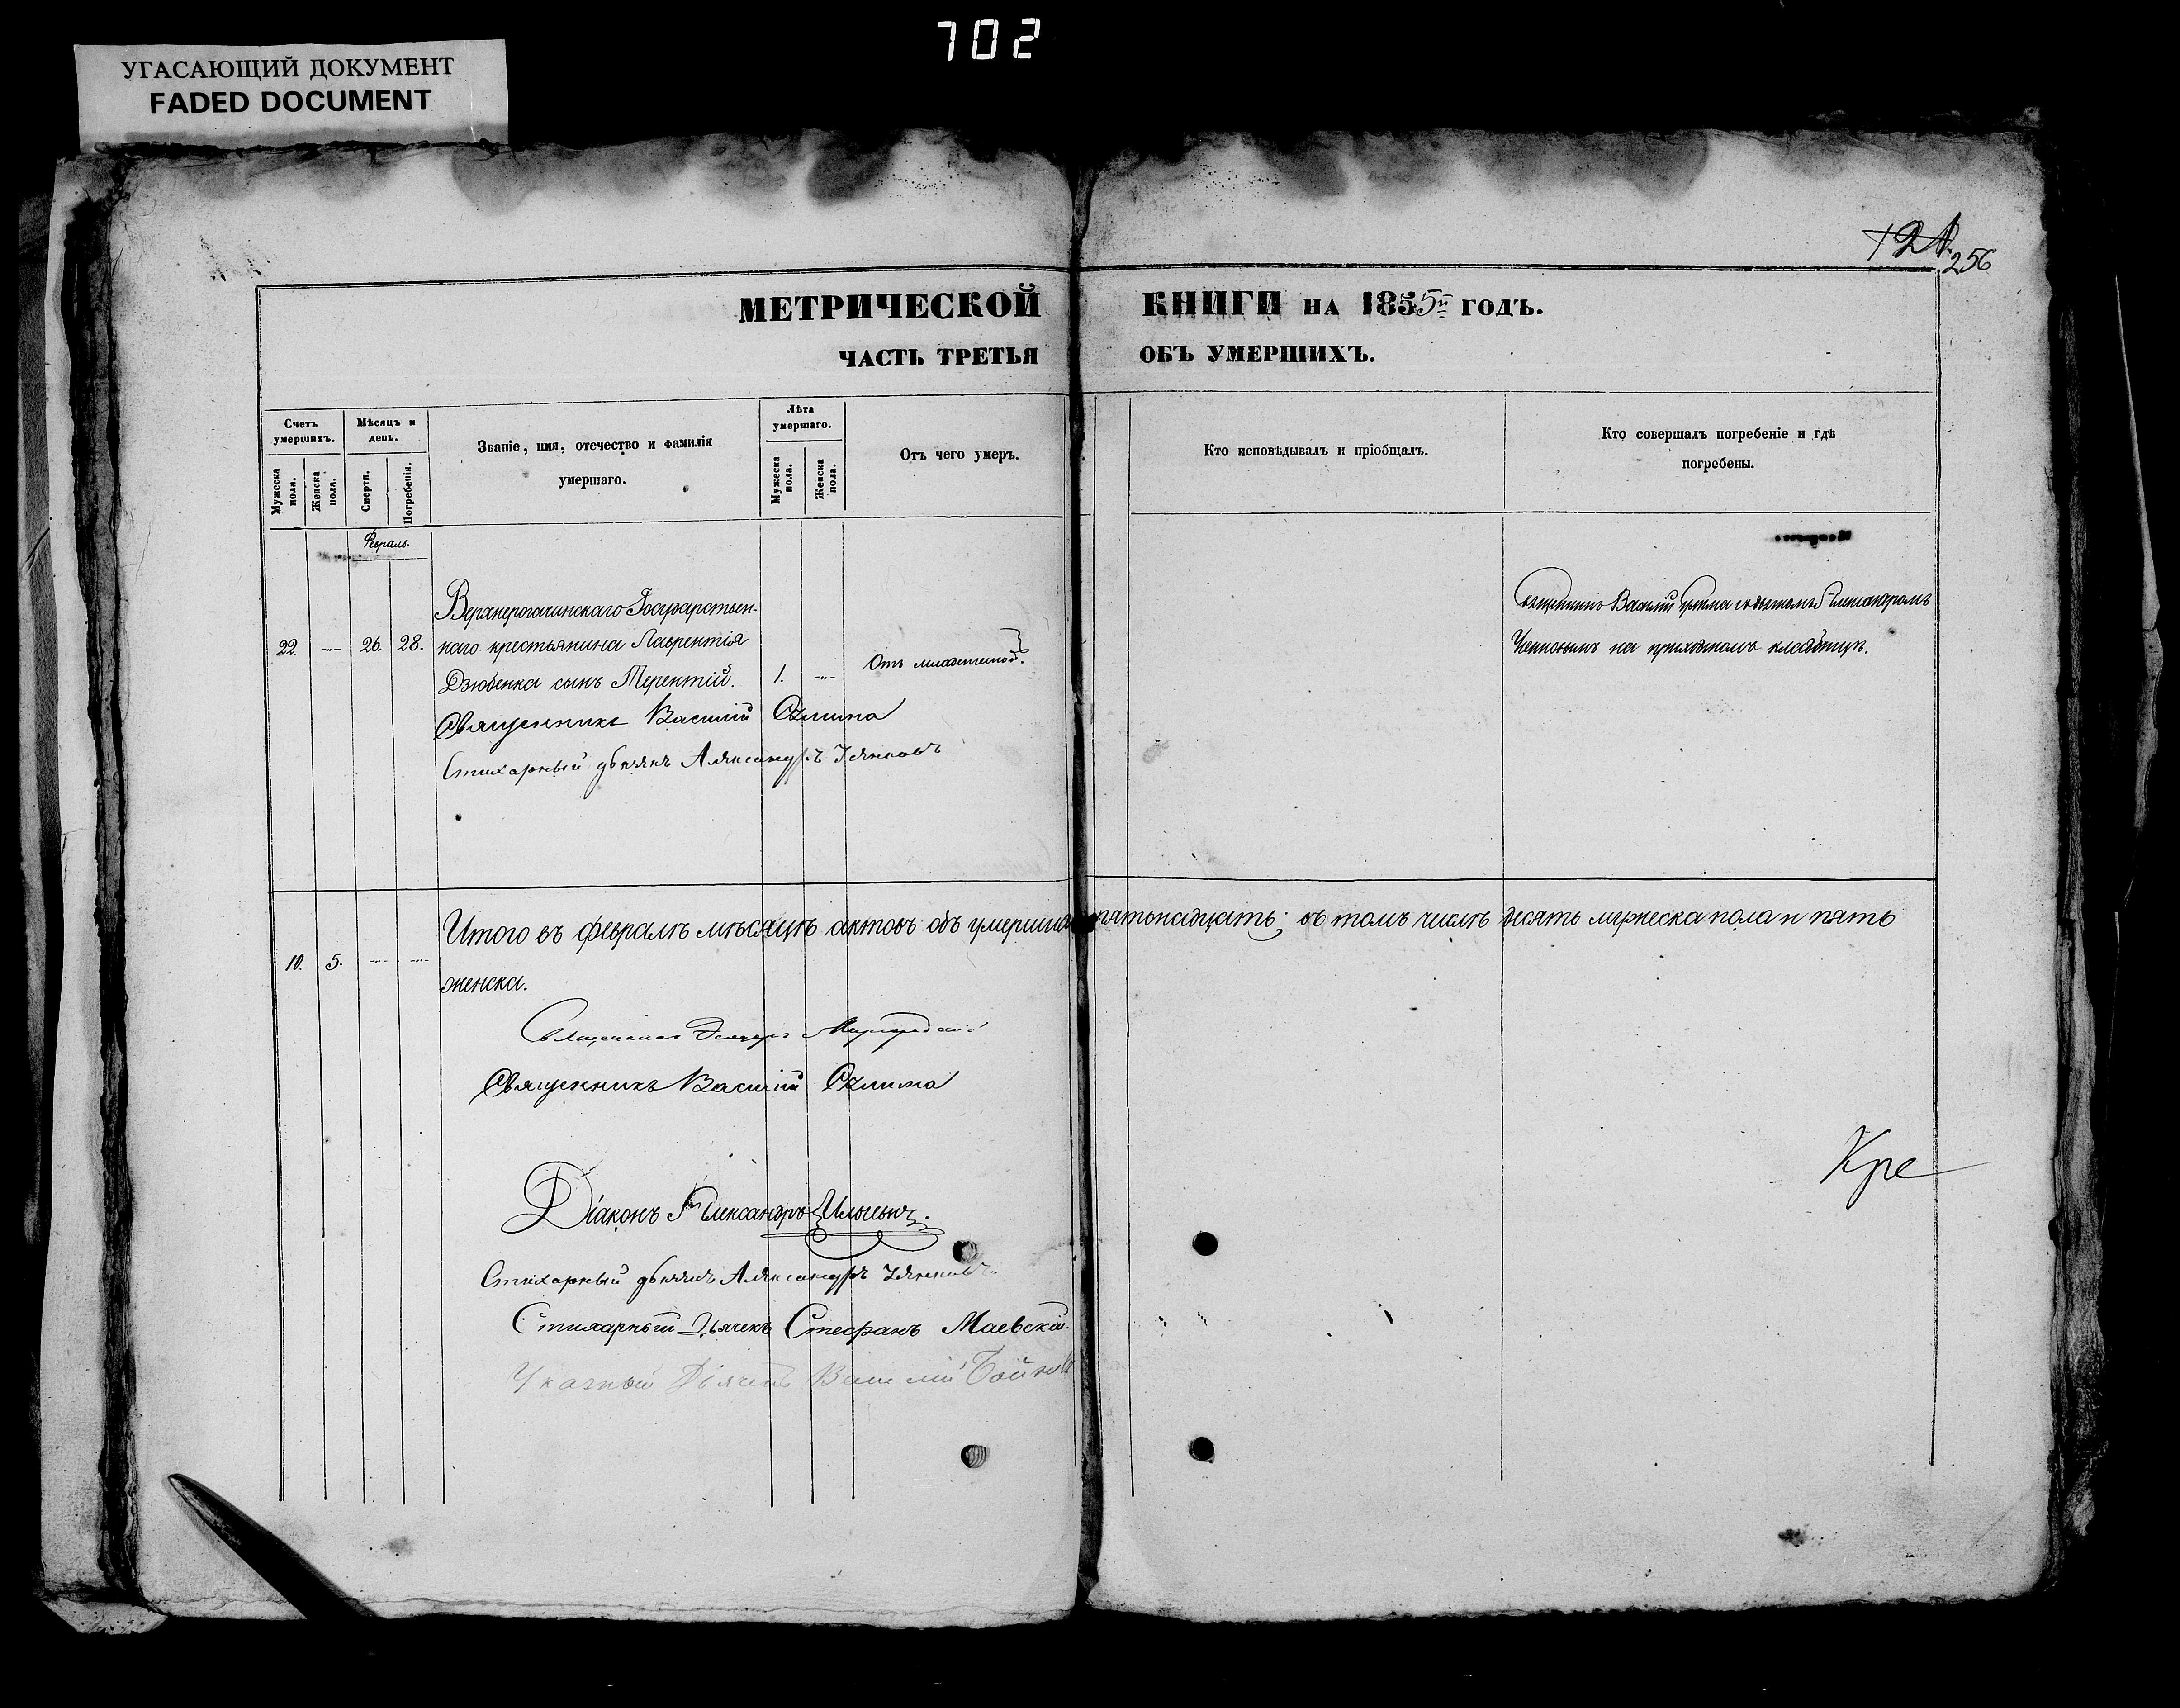 702
УГАСАЮЩИЙ ДОКУМЕНТ
FADED DOCUMENT
124.
256
МЕТРИЧЕСКОЙ КНИГИ НА 1855й ГОДЪ.
ЧАСТЬ ТРЕТЬЯ ОБЪ УМЕРШИХЪ.
Счетъ умершихъ.
Мужеска пола.
Женска пола.
Мѣсяцъ и день.
Смерти.
Погребенія.
Званіе, имя, отечество и фамилія
умершаго.
Лѣта умершаго.
Мужеска пола.
Женска пола.
Отъ чего умеръ.
Кто исповѣдывалъ и пріобщалъ.
Кто совершалъ погребеніе и гдѣ
погребены.
Февраль.
Верхнерогачинскаго Государствен-
22. --- 26. 28. наго крестьянина Лаврентія
Дзюбенка сынъ Терентій. 1. --- Отъ младенческой.
Священникъ Василій
Стихарный дьячекъ Александръ
Священникъ Василій съ дьячкомъ Александромъ
на приходскомъ кладбищѣ.
Итого въ февралѣ мѣсяцѣ актовъ объ умершихъ пятьнадцать; въ томъ числѣ десять мужеска пола и пять
10. 5. --- ---
женска.
Священникъ
Священникъ Василій
Діаконъ Александръ
Стихарный дьячекъ Александръ
Стихарный Дьячекъ Стефанъ Маевскій.
Указный Дьячекъ Василій
Кре